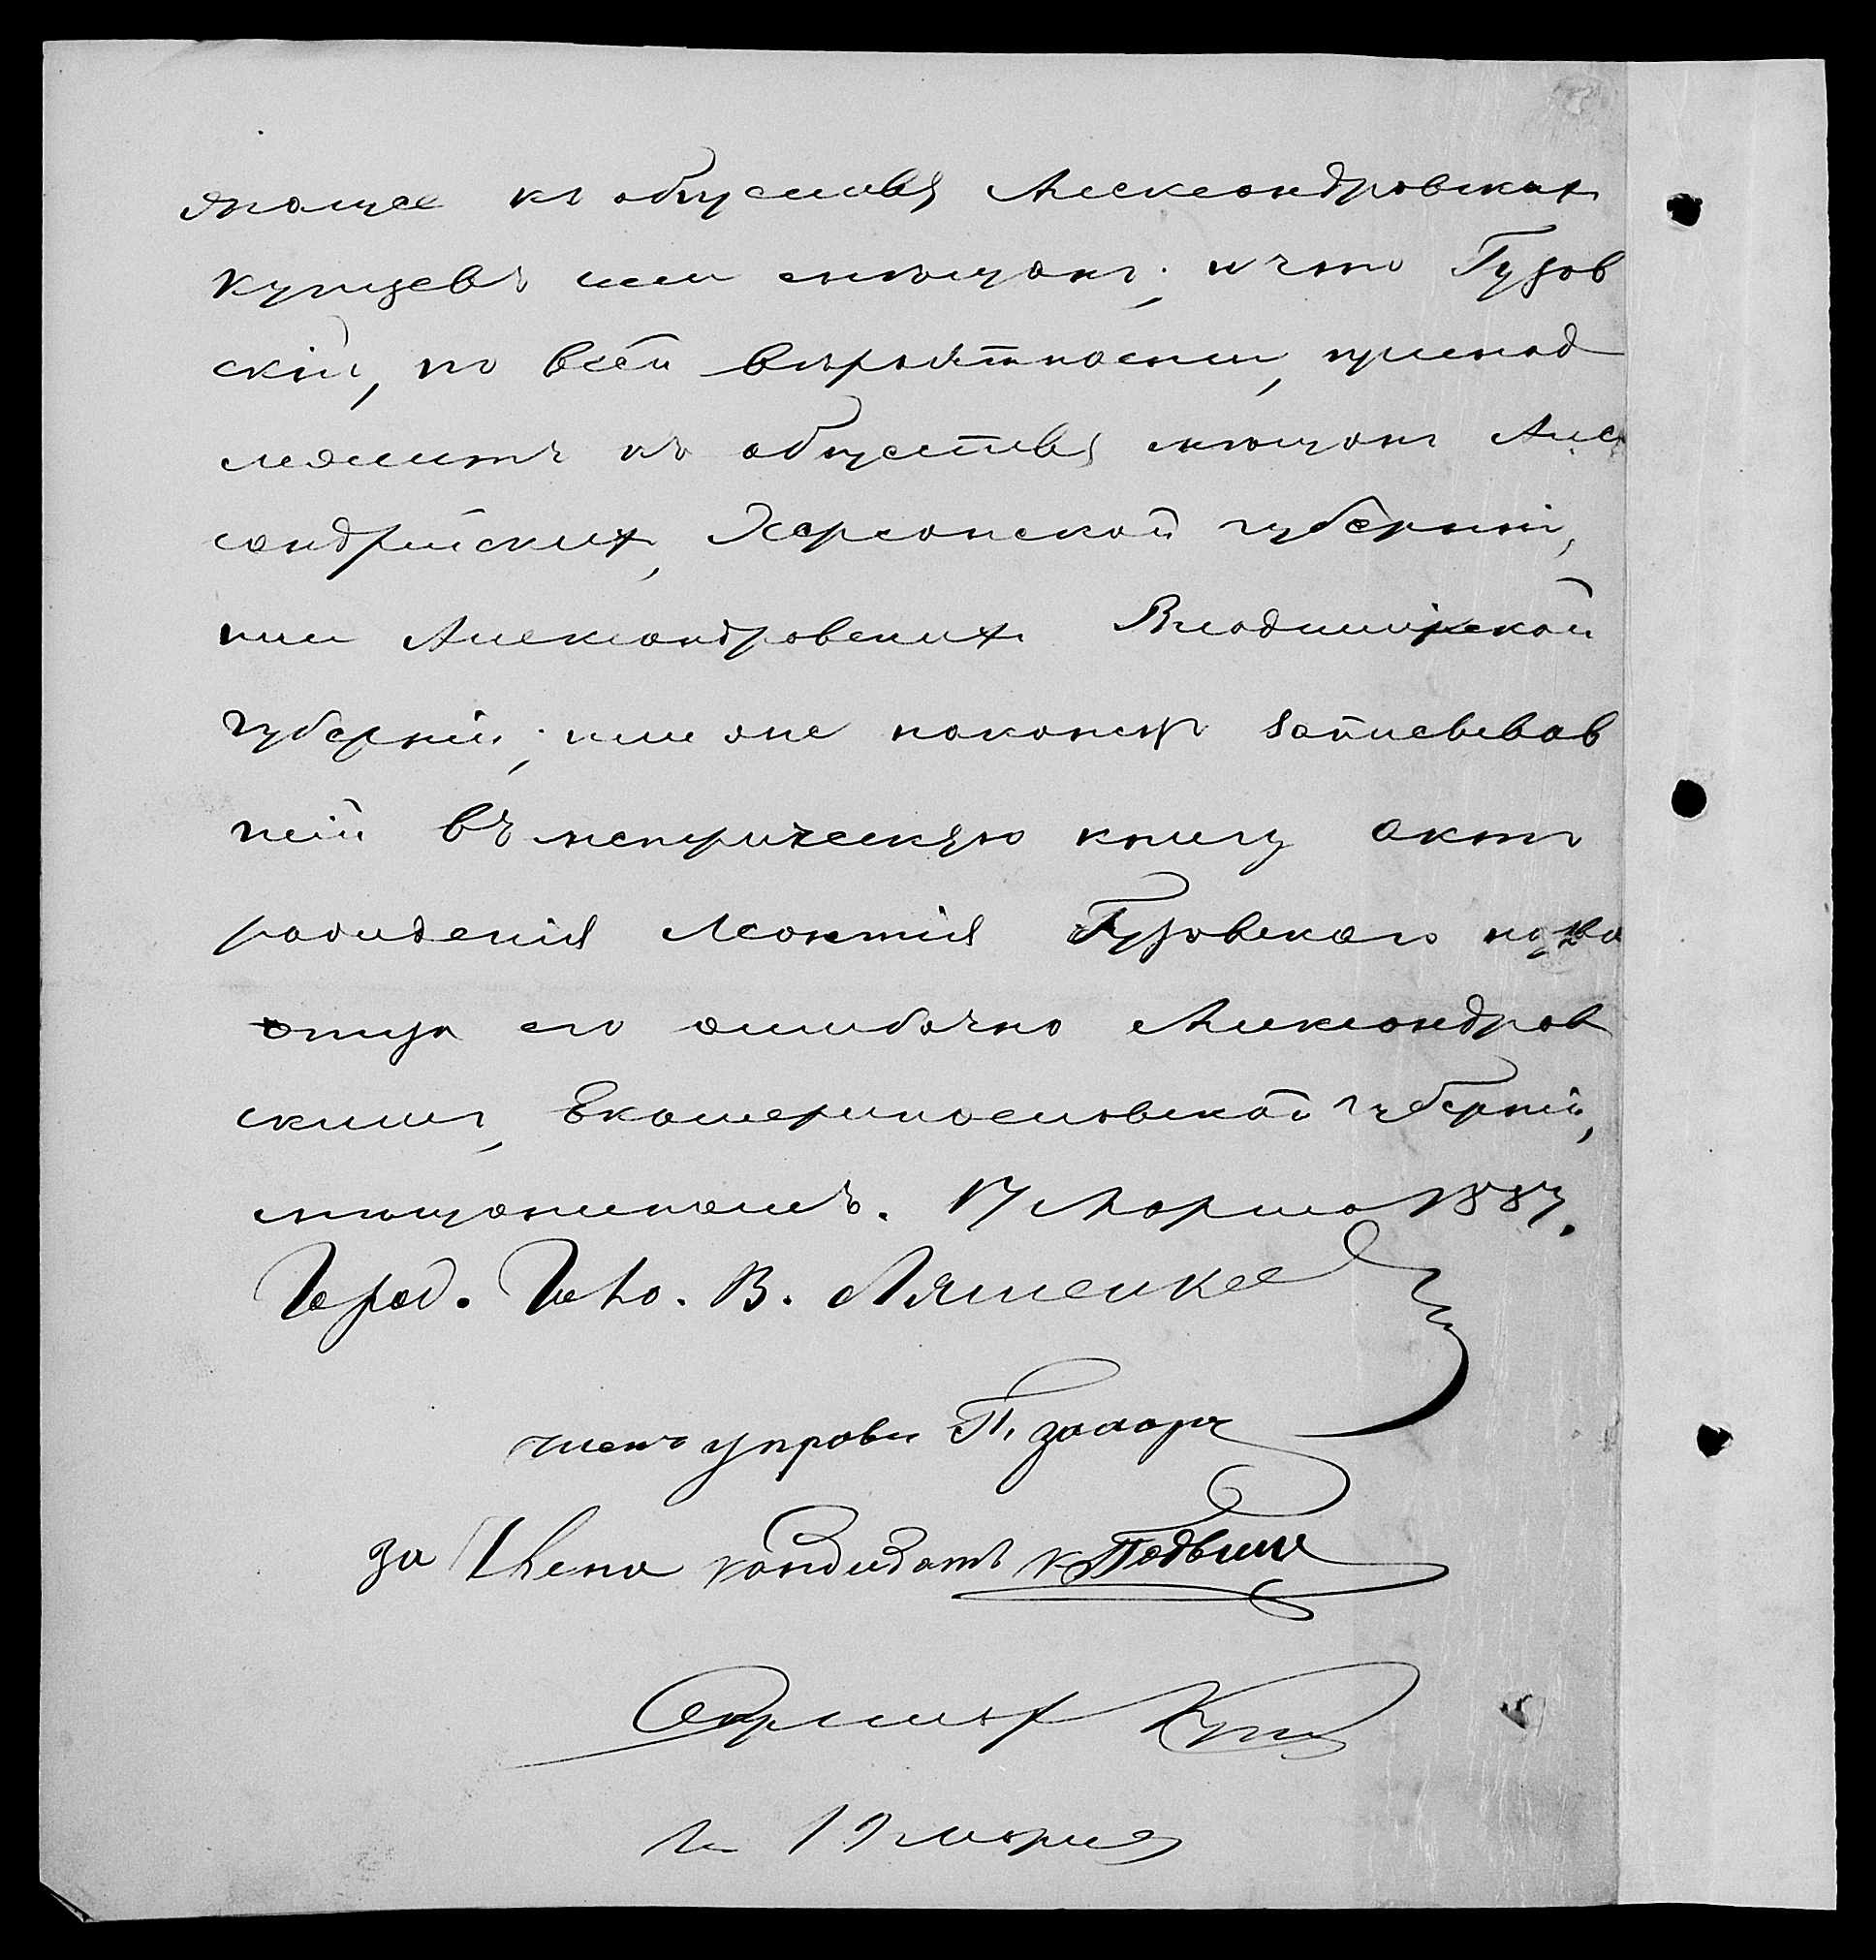 къ обществу Александровскихъ
купцевъ или мѣщанъ; и что Гузов
скій, по всей вѣрѣятности, принад
лежитъ къ обществу мѣщанъ Алек
сандрійскихъ, Херсонской губерніи,
или Александровскихъ Владимірской
губерніи; или же наконецъ записывав
шій въ метрическую книгу актъ
рожденія Леонтія Гузовскаго назва
отца его ошибочно Александров
скимъ, Екатеринославской губерніи,
мѣщаниномъ. 17 Марта 1887.
Город. Голо. В. Ляшенко
членъ управы П. Захарч
за Члена кандидатъ К. Подвин
Секретарь
19 марта